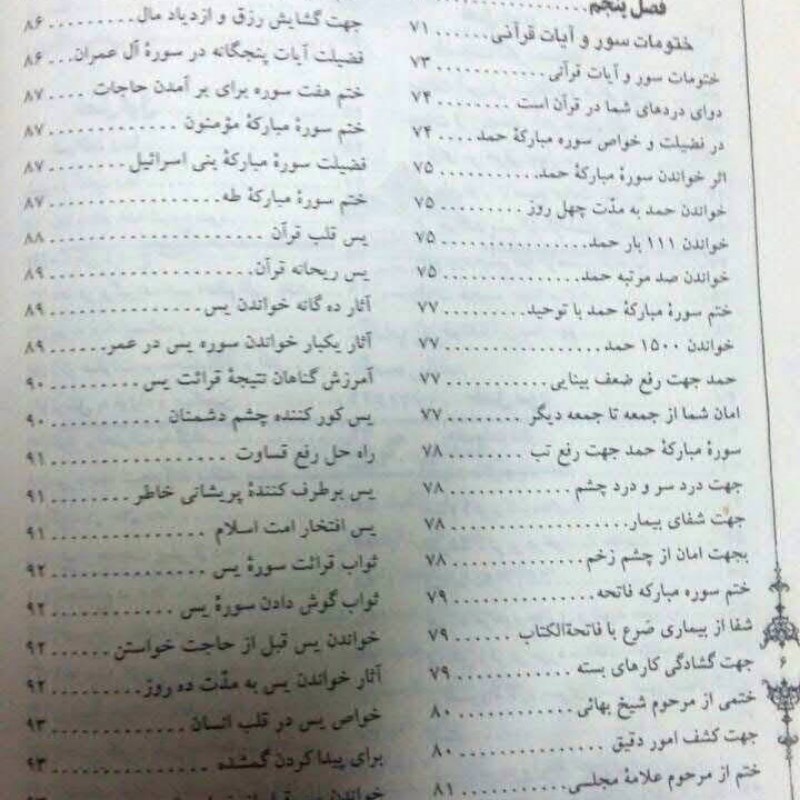 فصل پنجم..............
ختومات سور و آیات قرآنی...... ۷۱
ختومات سور و آیات قرآنی............ ۷۳
دوای دردهای شما در قرآن است ........ ۷۴
در فضیلت و خواص سوره مبارکهٔ حمد.... ۷۴
اثر خواندن سورهٔ مبارکهٔ حمد........... ۷۵
خواندن حمد به مدّت چهل روز ......... ۷۵
خواندن ۱۱۱ بار حمد.................. ۷۵
خواندن صد مرتبه حمد................ ۷۵
ختم سورهٔ مبارکهٔ حمد با توحید........ ۷۷
خواندن ۱۵۰۰ حمد................... ۷۷
حمد جهت رفع ضعف بینایی............ ۷۷
امان شما از جمعه تا جمعه دیگر ........ ۷۷
سورهٔ مبارکهٔ حمد جهت رفع تب ....... ۷۸
جهت درد سر و درد چشم.............. ۷۸
جهت شفای بیمار.................... ۷۸
بجهت امان از چشم زخم............... ۷۸
ختم سوره مبارکه فاتحه................ ۷۹
شفا از بیماری صَرع با فاتحةالکتاب ...... ۷۹
جهت گشادگی کارهای بسته ............ ۷۹
ختمی از مرحوم شیخ بهائی............ ۸۰
جهت کشف امور دقیق ............... ۸۰
ختم از مرحوم علامهٔ مجلسی........... ۸۱
جهت گشایش رزق و ازدیاد مال......... ۸۶
فضیلت آیات پنجگانه در سورهٔ آل عمران... ۸۶
ختم هفت سوره برای بر آمدن حاجات ..... ۸۷
ختم سورهٔ مبارکهٔ مؤمنون ............. ۸۷
فضیلت سورهٔ مبارکهٔ بنی اسرائیل ........ ۸۷
ختم سورهٔ مبارکهٔ طه................. ۸۷
یس قلب قرآن ..................... ۸۸
یس ریحانه قرآن.................... ۸۹
آثار ده گانه خواندن یس............... ۸۹
آثار یکبار خواندن سوره یس در عمر...... ۸۹
آمرزش گناهان نتیجهٔ قرائت یس ......... ۹۰
یس کور کننده چشم دشمنان ........... ۹۰
راه حل رفع قساوت ................. ۹۱
یس برطرف کنندهٔ پریشانی خاطر ........ ۹۱
یس افتخار امت اسلام ............... ۹۱
ثواب قرائت سورهٔ یس ............... ۹۲
ثواب گوش دادن سورهٔ یس ............ ۹۲
خواندن یس قبل از حاجت خواستن ...... ۹۲
آثار خواندن یس به مدّت ده روز......... ۹۲
خواص یس در قلب انسان ............ ۹۳
برای پیدا کردن گمشده ............... ۹۳
۶